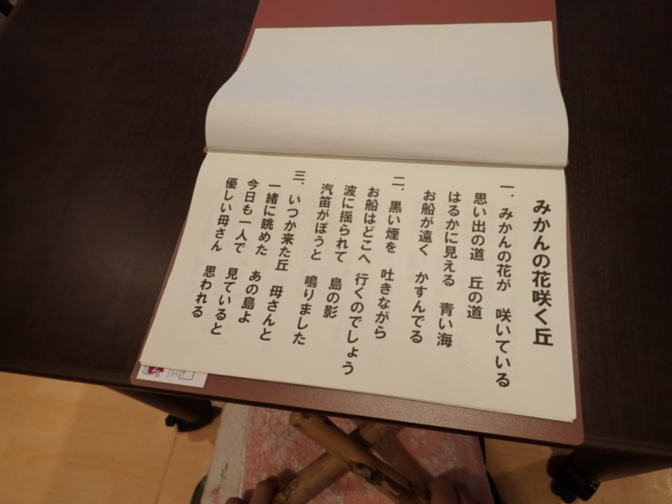 みかんの花咲く丘
一．みかんの花が　咲いている
思い出の道　丘の道
はるかに見える　青い海
お船が遠く　かすんでる
二．黒い煙を　吐きながら
お船はどこへ　行くのでしょう
波に揺られて　島の影
汽笛がぼうと　鳴りました
三．いつか来た丘　母さんと
一緒に眺めた　あの島よ
今日も一人で　見ていると
優しい母さん　思われる